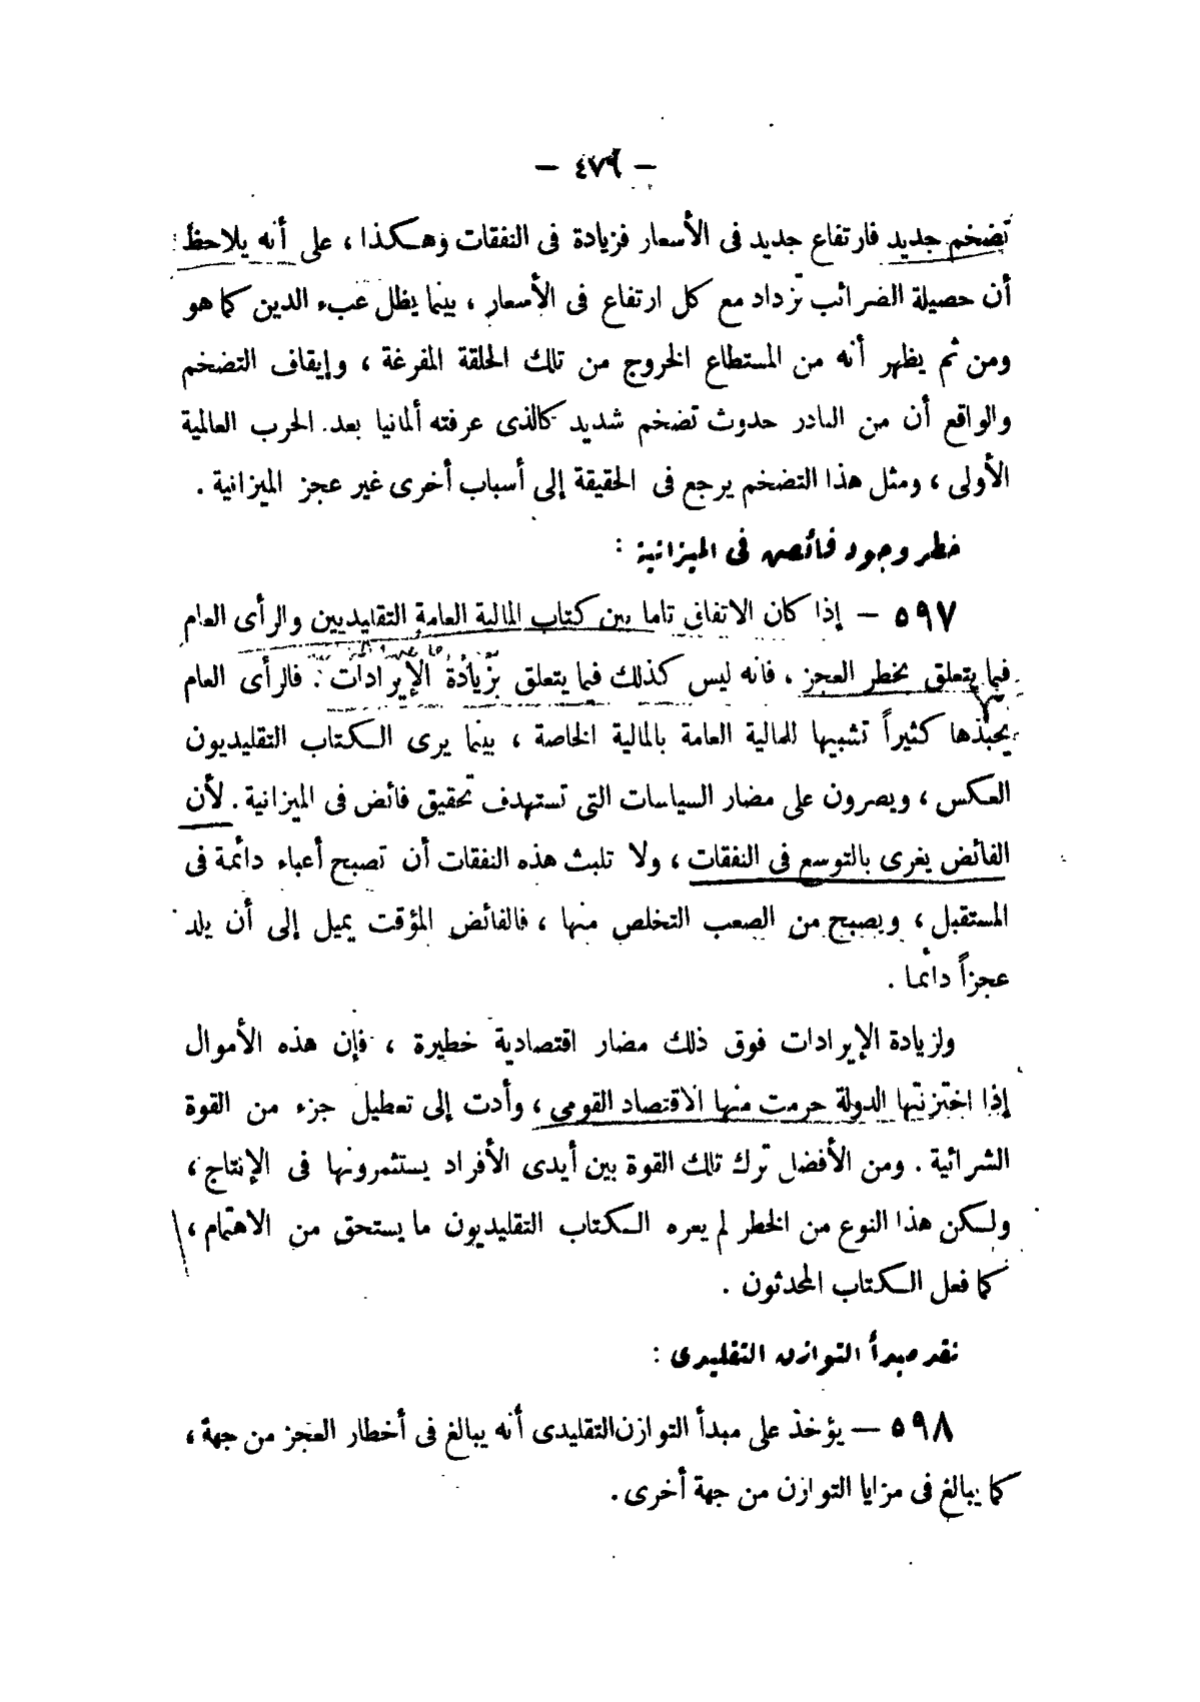 — ٤٧٩ —
تضخم جديد فارتفاع جديد فى الأسعار فزيادة فى النفقات وهكذا ، على أنه يلاحظ
أن حصيلة الضرائب تزداد مع كل ارتفاع فى الأسعار ، بينما يظل عبء الدين كما هو
ومن ثم يظهر أنه من المستطاع الخروج من تلك الحلقة المفرغة ، وإيقاف التضخم
والواقع أن من النادر حدوث تضخم شديد كالذى عرفته ألمانيا بعد الحرب العالمية
الأولى ، ومثل هذا التضخم يرجع فى الحقيقة إلى أسباب أخرى غير عجز الميزانية .
خطر وجود فائض فى الميزانية :
٥٩٧ — إذا كان الاتفاق تاما بين كتاب المالية العامة التقليديين والرأى العام
فيما يتعلق بخطر العجز ، فانه ليس كذلك فيما يتعلق بزيادة الإيرادات . فالرأى العام
يحبذها كثيراً تشبيها للمالية العامة بالمالية الخاصة ، بينما يرى الكتاب التقليديون
العكس ، ويصرون على مضار السياسات التى تستهدف تحقيق فائض فى الميزانية . لأن
الفائض يغرى بالتوسع فى النفقات ، ولا تلبث هذه النفقات أن تصبح أعباء دائمة فى
المستقبل ، ويصبح من الصعب التخلص منها ، فالفائض المؤقت يميل إلى أن يلد
عجزاً دائما .
ولزيادة الإيرادات فوق ذلك مضار اقتصادية خطيرة ، فإن هذه الأموال
إذا اختزنتها الدولة حرمت منها الاقتصاد القومى ، وأدت إلى تعطيل جزء من القوة
الشرائية . ومن الأفضل ترك تلك القوة بين أيدى الأفراد يستثمرونها فى الإنتاج ،
ولكن هذا النوع من الخطر لم يعره الكتاب التقليديون ما يستحق من الاهتمام ،
كما فعل الكتاب المحدثون .
نقد مبدأ التوازن التقليدى :
٥٩٨ — يؤخذ على مبدأ التوازن التقليدى أنه يبالغ فى أخطار العجز من جهة ،
كما يبالغ فى مزايا التوازن من جهة أخرى .